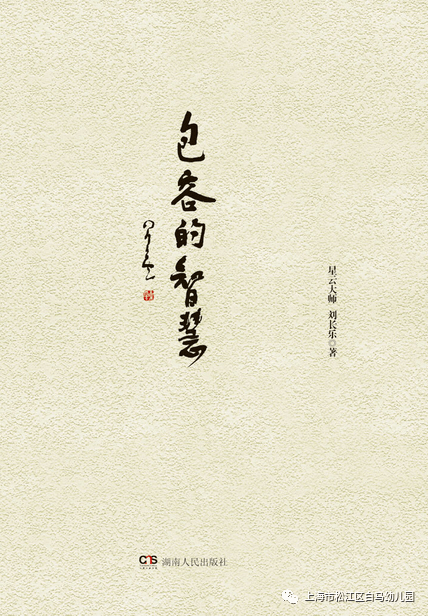 包容的智慧
星云
星云大师 刘长乐◎著
CTS 湖南人民出版社
上海市松江区白马幼儿园